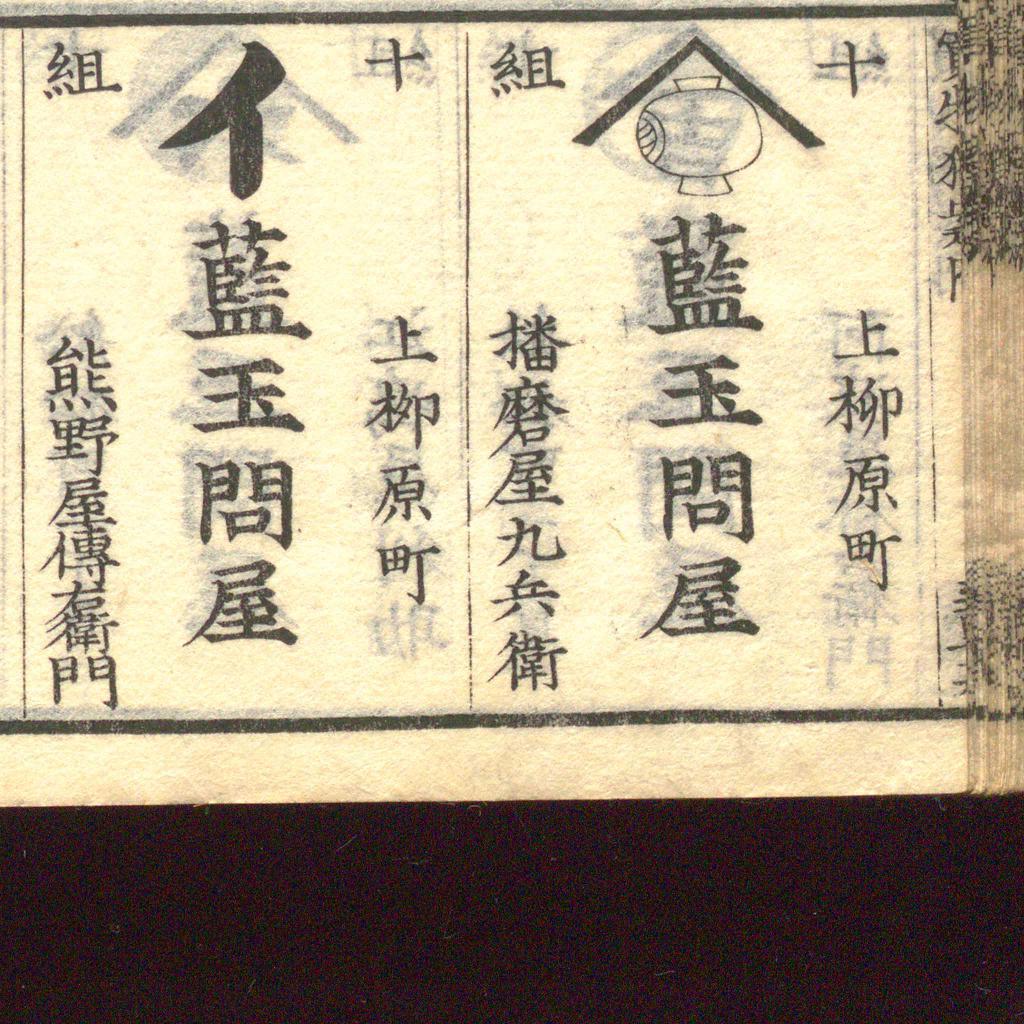 十組
藍玉問屋
上柳原町
播磨屋九兵衛
十組
イ
藍玉問屋
上柳原町
熊野屋傳右衛門